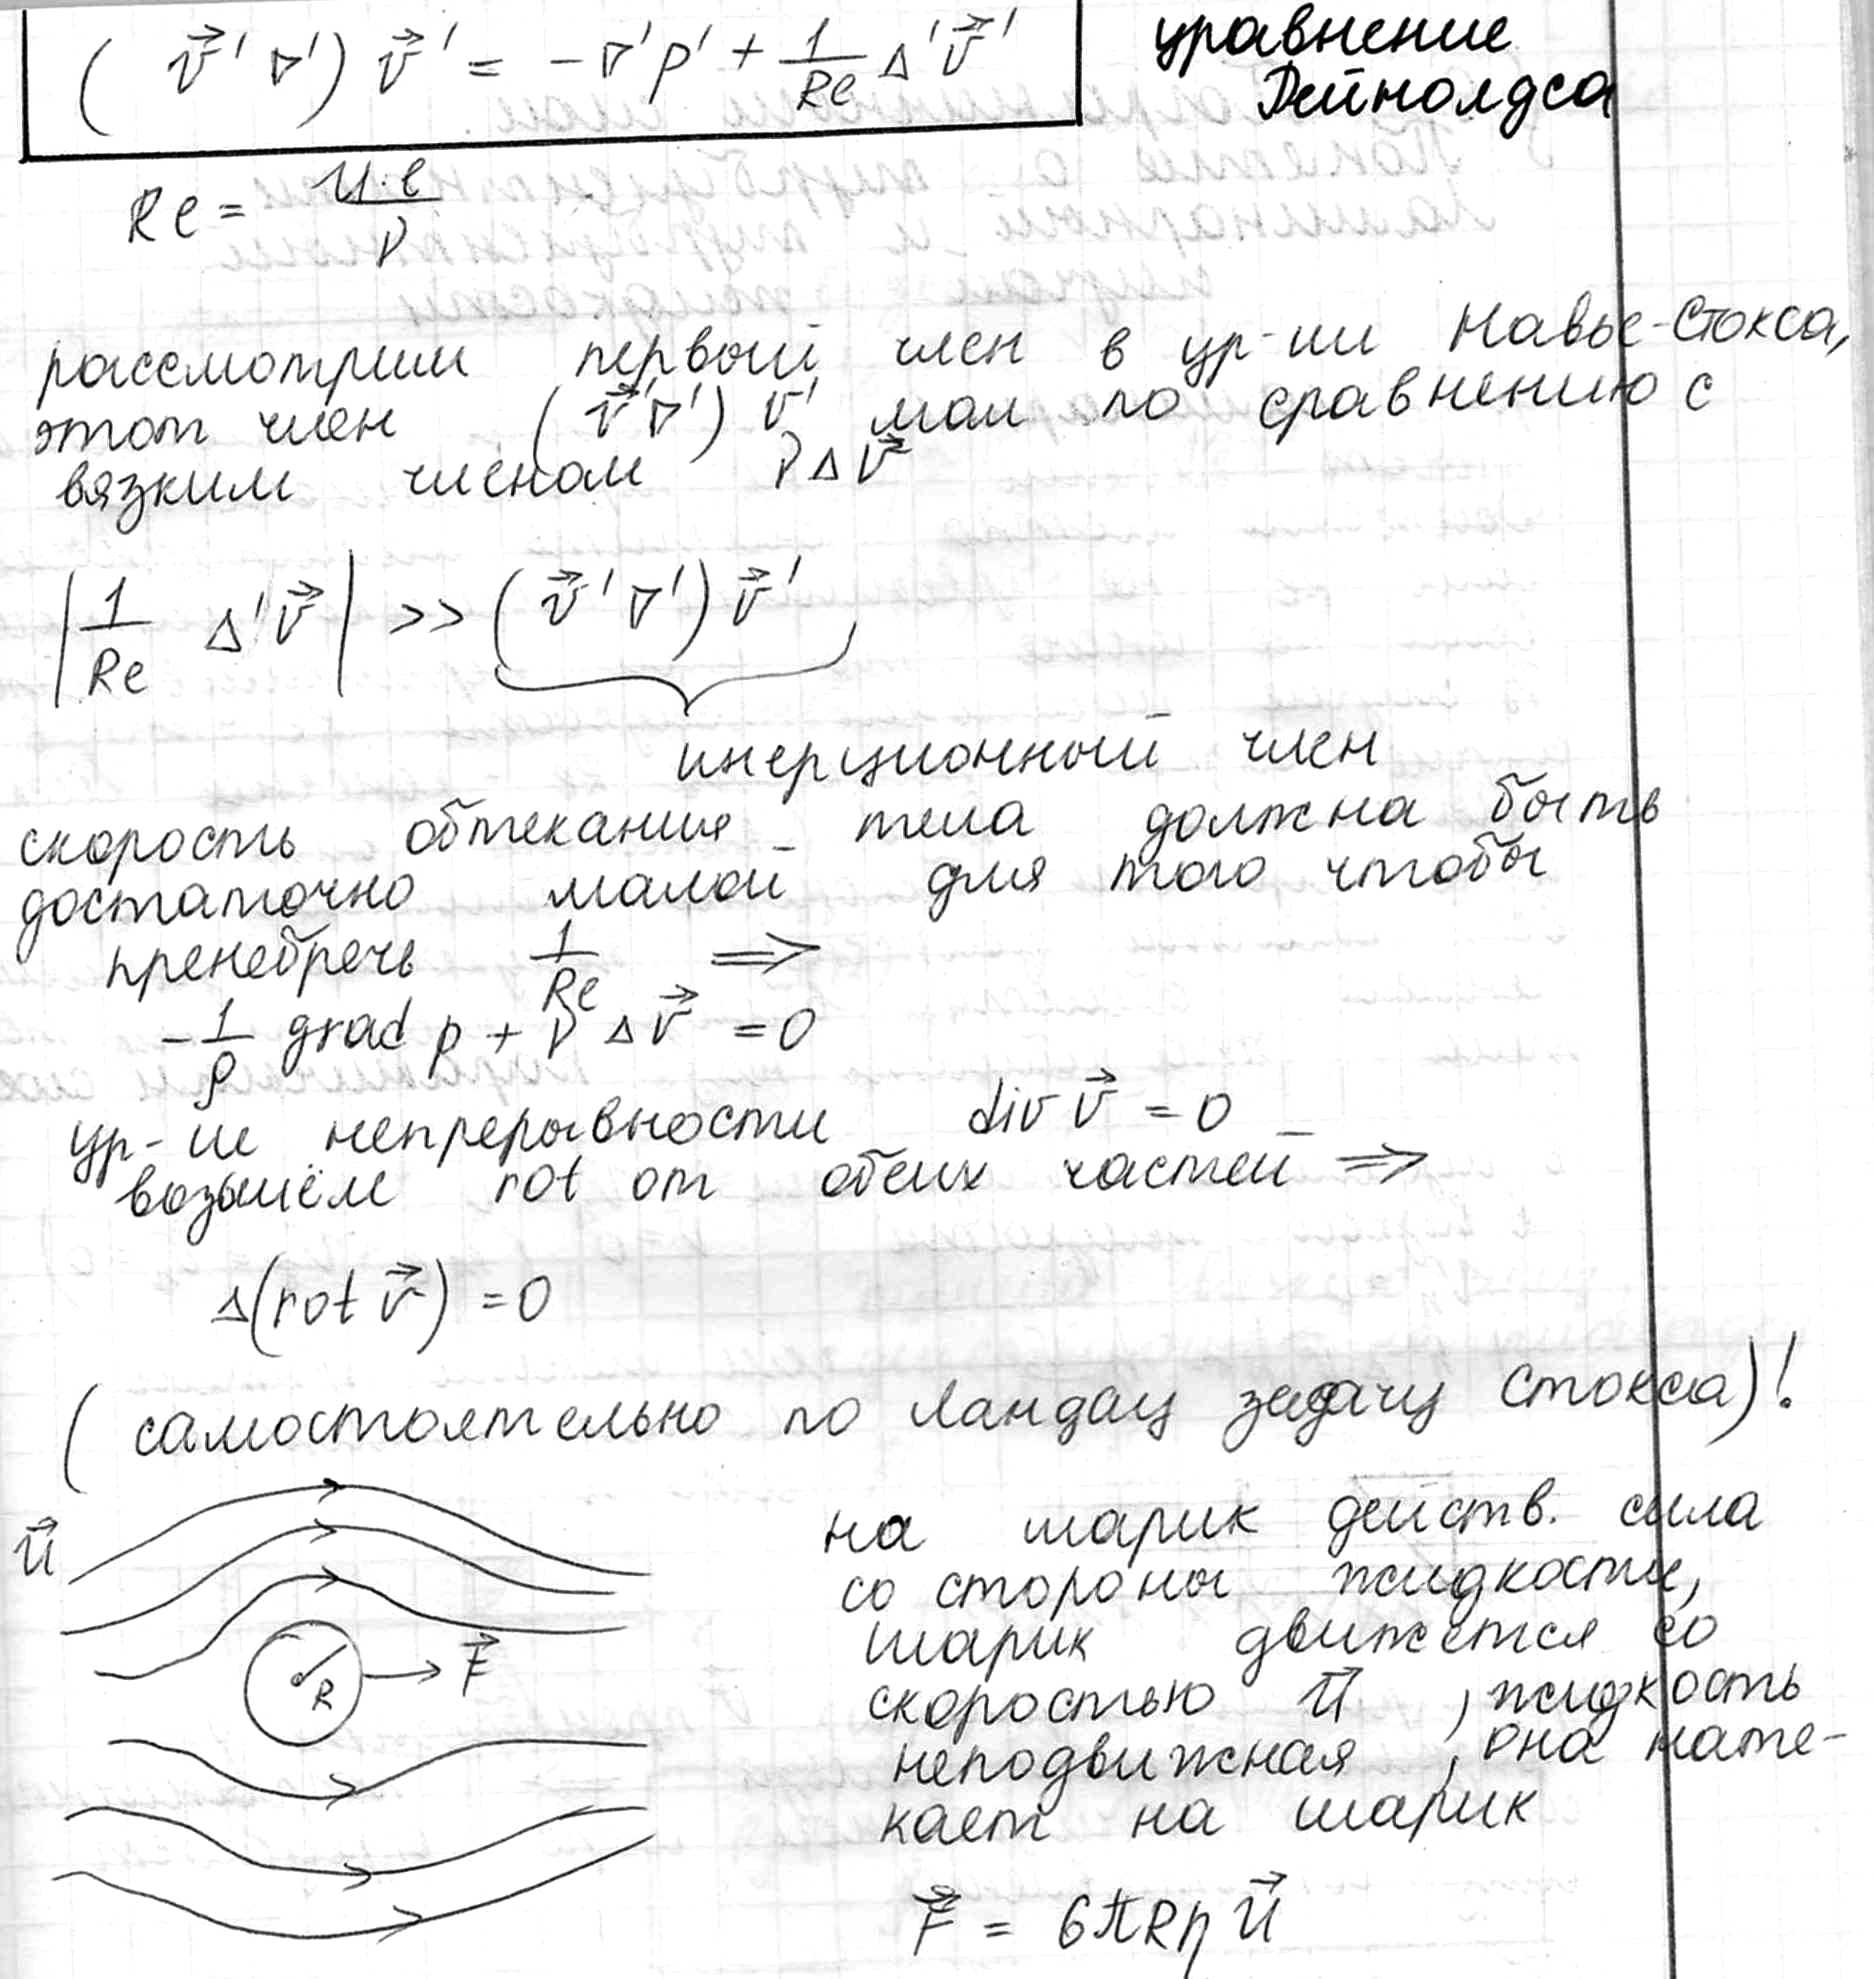 (v⃗'∇')v⃗' = -∇'p' + 1/Re Δ'v⃗'
уравнение
Рейнолдса
Re = u·l/ν
рассмотрим первый член в ур-ии Навье-Стокса,
этот член (v⃗'∇')v' мал по сравнению с
вязким членом νΔv⃗
|1/Re Δ'v⃗| >> (v⃗'∇')v⃗'
инерционный член
скорость обтекания тела должна быть
достаточно малой для того чтобы
пренебречь 1/Re ⇒
-1/ρ grad p + νΔv⃗ = 0
ур-ие непрерывности div v⃗ = 0
возьмём rot от обеих частей ⇒
Δ(rot v⃗) = 0
(самостоятельно по Ландау задачу Стокса)!
u⃗
R
F⃗
на шарик действ. сила
со стороны жидкости,
шарик движется со
скоростью u⃗, жидкость
неподвижная, она нате-
кает на шарик
F⃗ = 6πRηu⃗